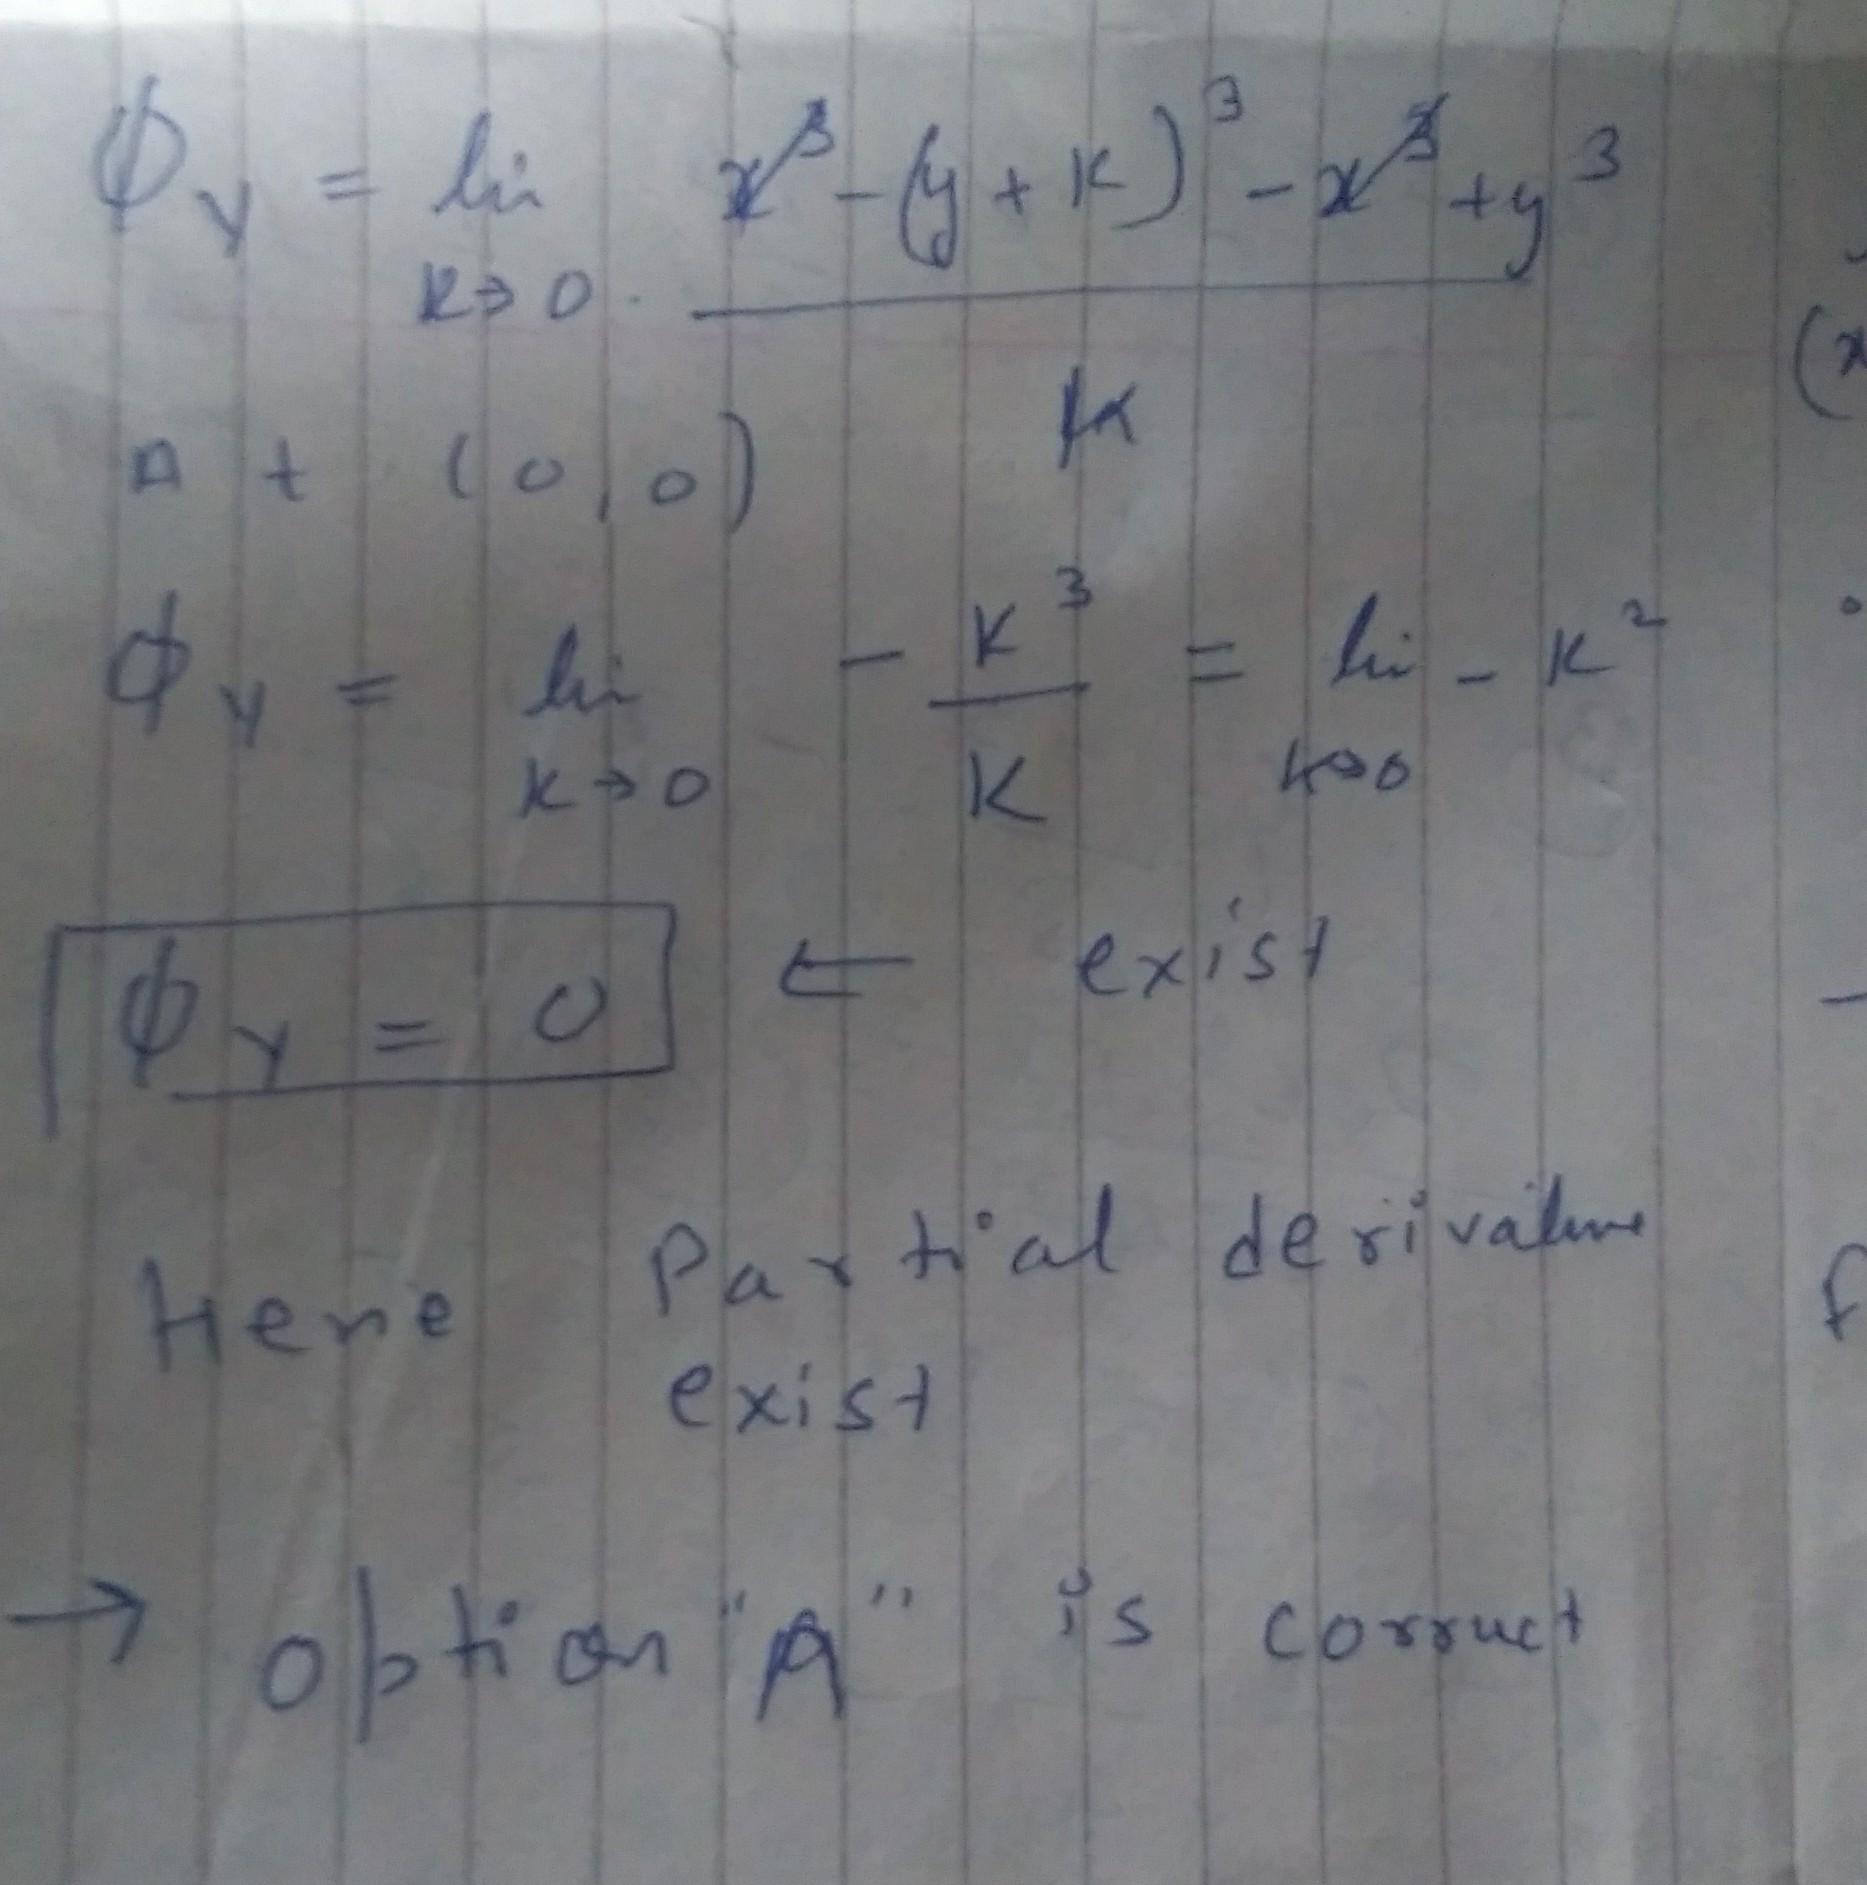 ϕy = lim x³ - (y + k)³ - x³ + y³
k→0
k
At (0,0)
ϕy = lim - k³ = lim - k²
k→0 k k→0
ϕy = 0 ← exist
Here Partial derivative
exist
→ option "A" is corruct